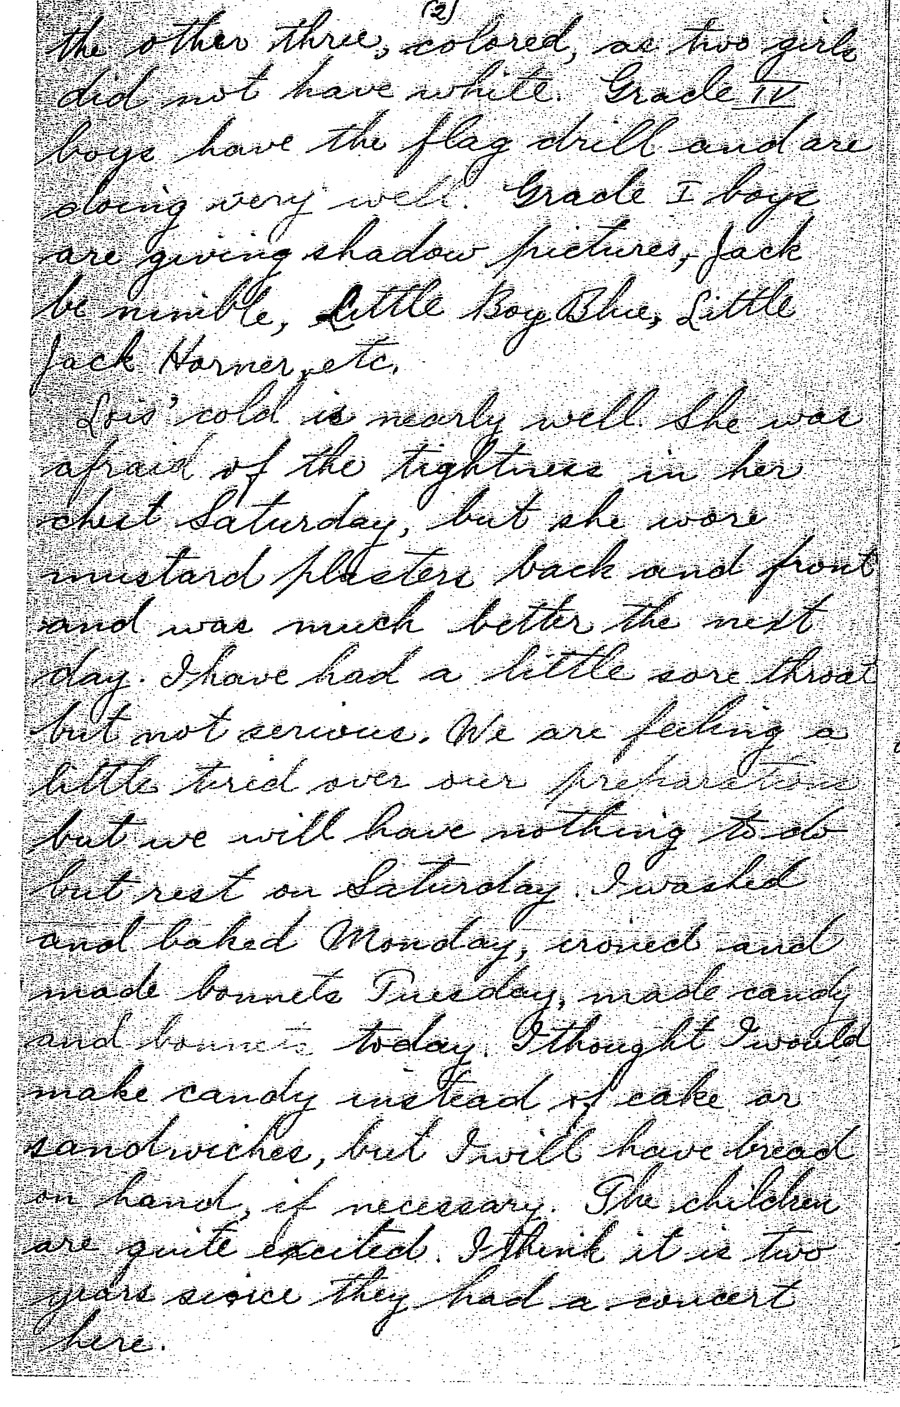 (2)
the other three, colored, as two girls
did not have white. Grade IV
boys have the flag drill and are
doing very well. Grade I boys
are giving shadow pictures, Jack
be nimble, Little Boy Blue, Little
Jack Horner, etc.
Lois' cold is nearly well. She was
afraid of the tightness in her
chest Saturday, but she wore
mustard plasters back and front
and was much better the next
day. I have had a little sore throat
but not serious. We are feeling a
little tired over our preparations
but we will have nothing to do
but rest on Saturday. I washed
and baked Monday, ironed and
made bonnets Tuesday, made candy
and bonnets today. I thought I would
make candy instead of cake or
sandwiches, but I will have bread
on hand, if necessary. The children
are quite excited. I think it is two
years since they had a concert
here.